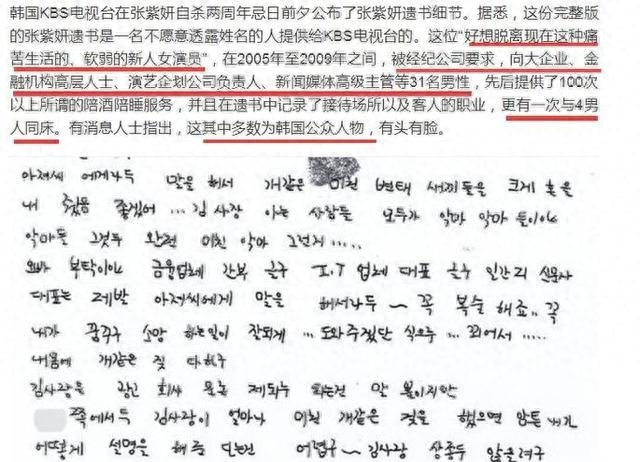 韩国KBS电视台在张紫妍自杀两周年忌日前夕公布了张紫妍遗书细节。据悉，这份完整版
的张紫妍遗书是一名不愿意透露姓名的人提供给KBS电视台的。这位“好想脱离现在这种痛
苦生活的、软弱的新人女演员”，在2005年至2009年之间，被经纪公司要求，向大企业、金
融机构高层人士、演艺企划公司负责人、新闻媒体高级主管等31名男性，先后提供了100次
以上所谓的陪酒陪睡服务，并且在遗书中记录了接待场所以及客人的职业，更有一次与4男
人同床。有消息人士指出，这其中多数为韩国公众人物，有头有脸。
아저씨 에게라두 말을 해서 개같은 미친 변태 새끼들을 크게 혼을
내 줬음 좋겠어 ... 김 사장 아는 사람들 모두가 악마 악마 들이야
악마들 그것두 완전 미친 악마 그런지 .....
오빠 부탁이야 금융업체 간부 는구 I.T 업체 대표 는구 일간지 신문사
대표는 제발 아저씨에게 말을 해서라두 ~ 꼭 복수 해죠.. 꼭
내가 꿈꾸구 소망 하는일이 잘되게 ... 도와주겠단 식으루 ... 꾀어서 .....
내몸에 개같은 짓 다하구
김사장을 광고 회사
쪽에서두 김사장이 얼마나 미친 개같은 짓을 했으면 암튼 내가
어떻게 설명을 해줘 어렵구 ~ 김사장